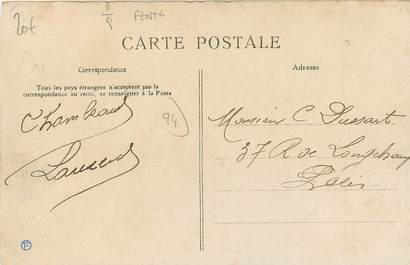 20€
FENTE
CARTE POSTALE
Correspondance
Tous les pays étrangers n'acceptent pas la
correspondance au recto, se renseigner à la Poste
94
Adresse
Monsieur C Dussart
37 R de Longchamp
Paris